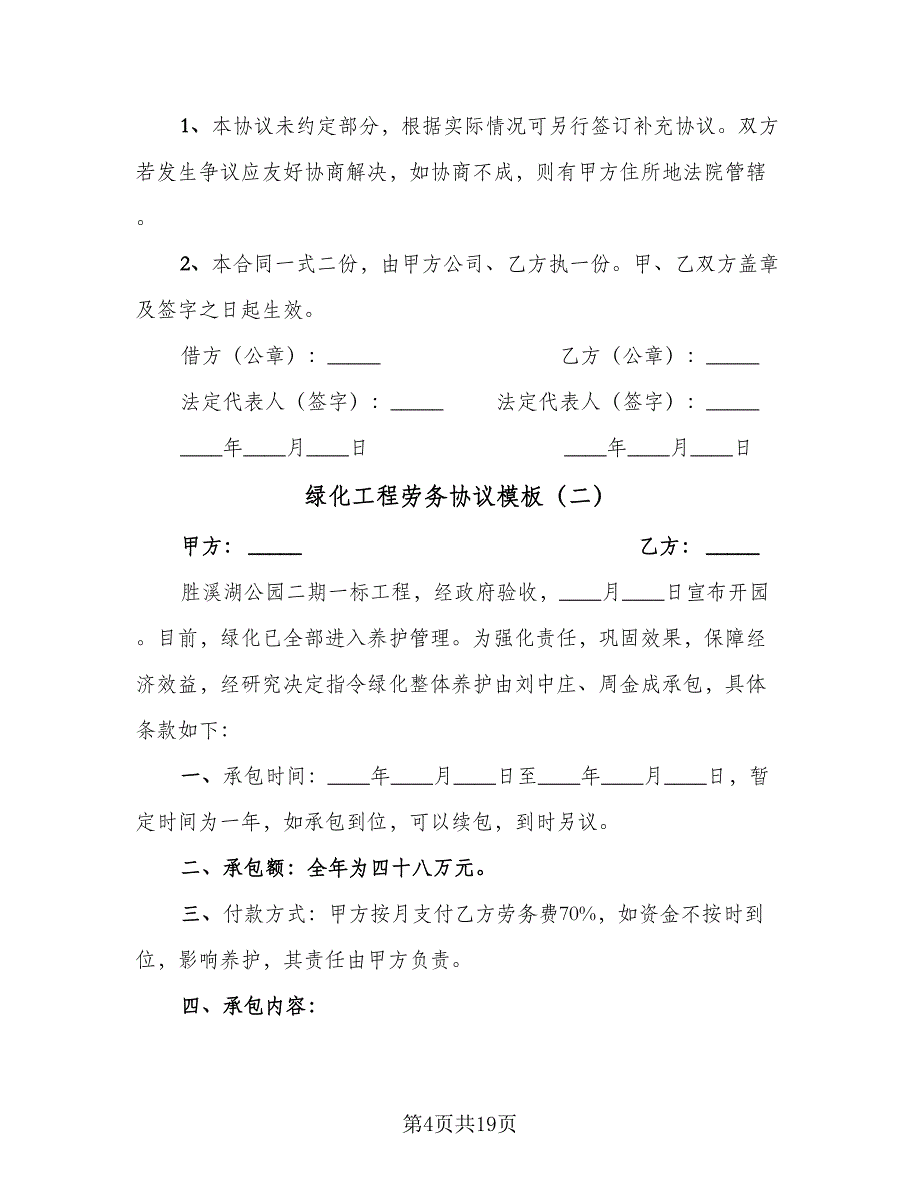 1、本协议未约定部分，根据实际情况可另行签订补充协议。双方
若发生争议应友好协商解决，如协商不成，则有甲方住所地法院管辖
。
2、本合同一式二份，由甲方公司、乙方执一份。甲、乙双方盖章
及签字之日起生效。
借方（公章）：_____ 乙方（公章）：_____
法定代表人（签字）：_____ 法定代表人（签字）：_____
____年____月____日 ____年____月____日
绿化工程劳务协议模板（二）
甲方：_____ 乙方：_____
胜溪湖公园二期一标工程，经政府验收，____月____日宣布开园
。目前，绿化已全部进入养护管理。为强化责任，巩固效果，保障经
济效益，经研究决定指令绿化整体养护由刘中庄、周金成承包，具体
条款如下：
一、承包时间：____年____月____日至____年____月____日，暂
定时间为一年，如承包到位，可以续包，到时另议。
二、承包额：全年为四十八万元。
三、付款方式：甲方按月支付乙方劳务费70%，如资金不按时到
位，影响养护，其责任由甲方负责。
四、承包内容：
第4页共19页